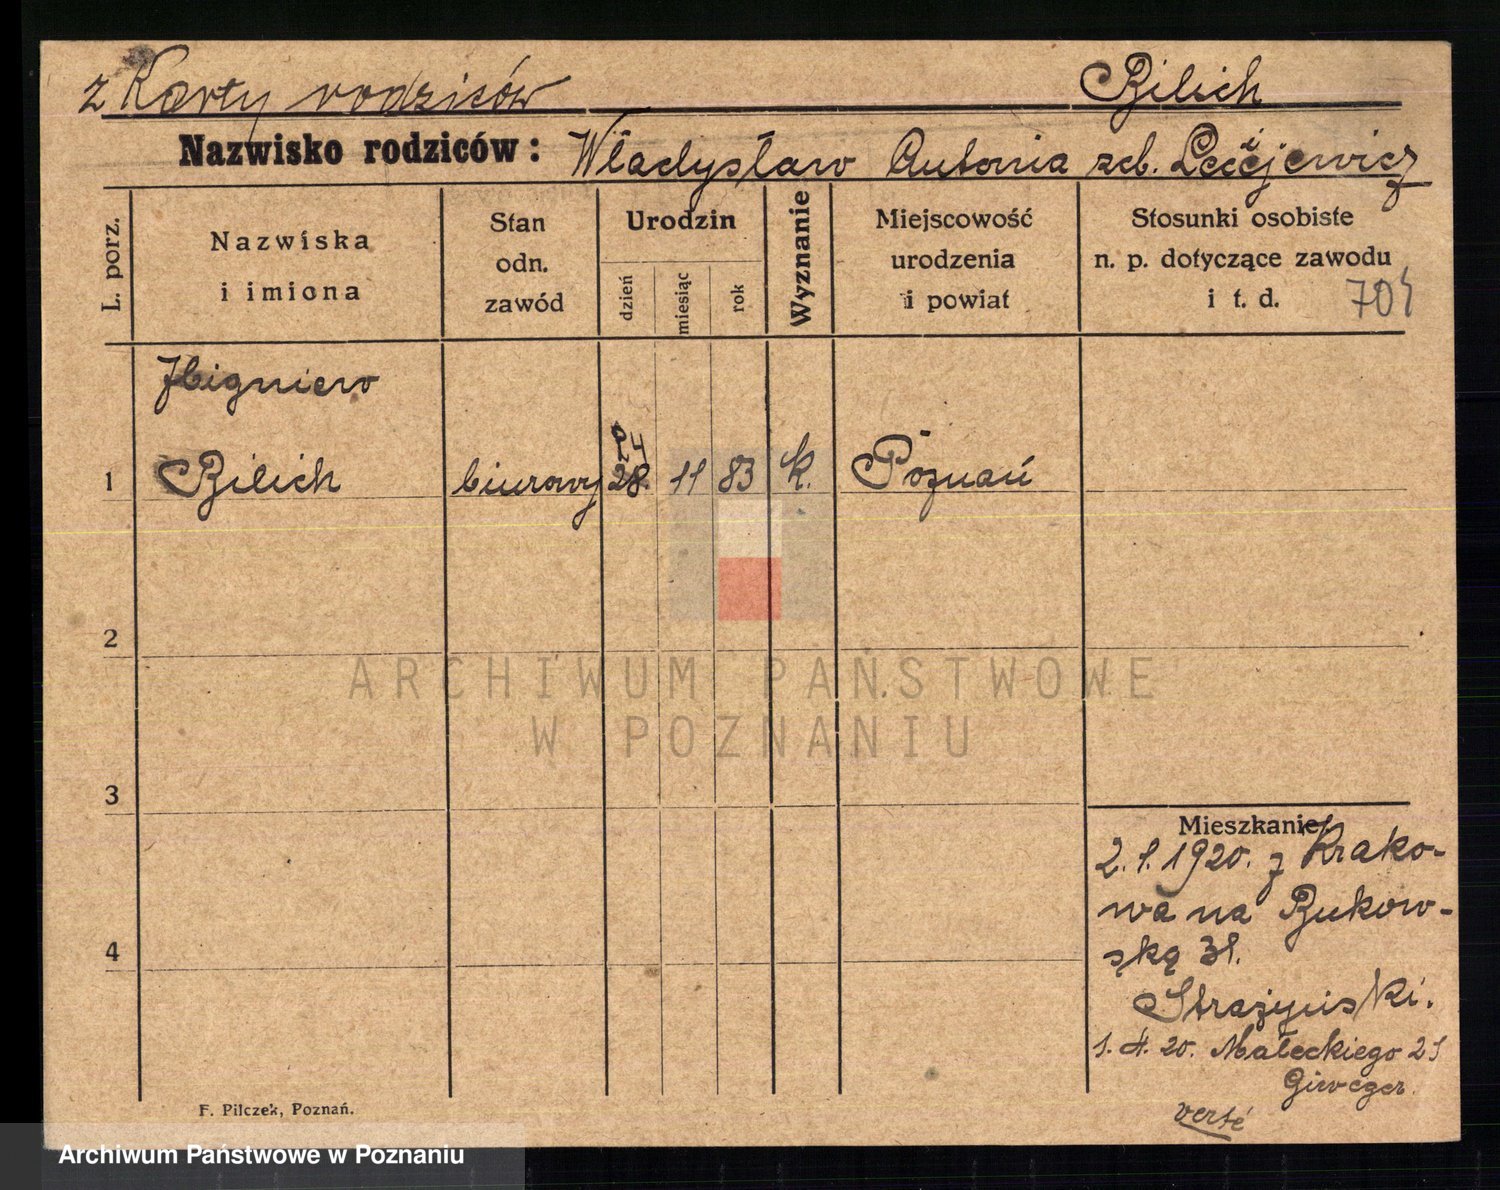 z Karty rodziców Bilich
Nazwisko rodziców: Władysław Antonia zd.
L. porz.
Nazwiska
i imiona
Stan
odn.
zawód
Urodzin
dzień
miesiąc
rok
Wyznanie
Miejscowość
urodzenia
i powiat
Stosunki osobiste
n. p. dotyczące zawodu
i t. d.
Zbigniew
1 Bilich biurowy 28. 11 83 k. Poznań
2
3
4
Mieszkanie
2. 1. 1920. z Krako-
wa na Bukow-
ską 31.
Strażyński.
1. 4. 20. Małeckiego 21
verte
F. Pilczek, Poznań.
ARCHIWUM PAŃSTWOWE
W POZNANIU
Archiwum Państwowe w Poznaniu